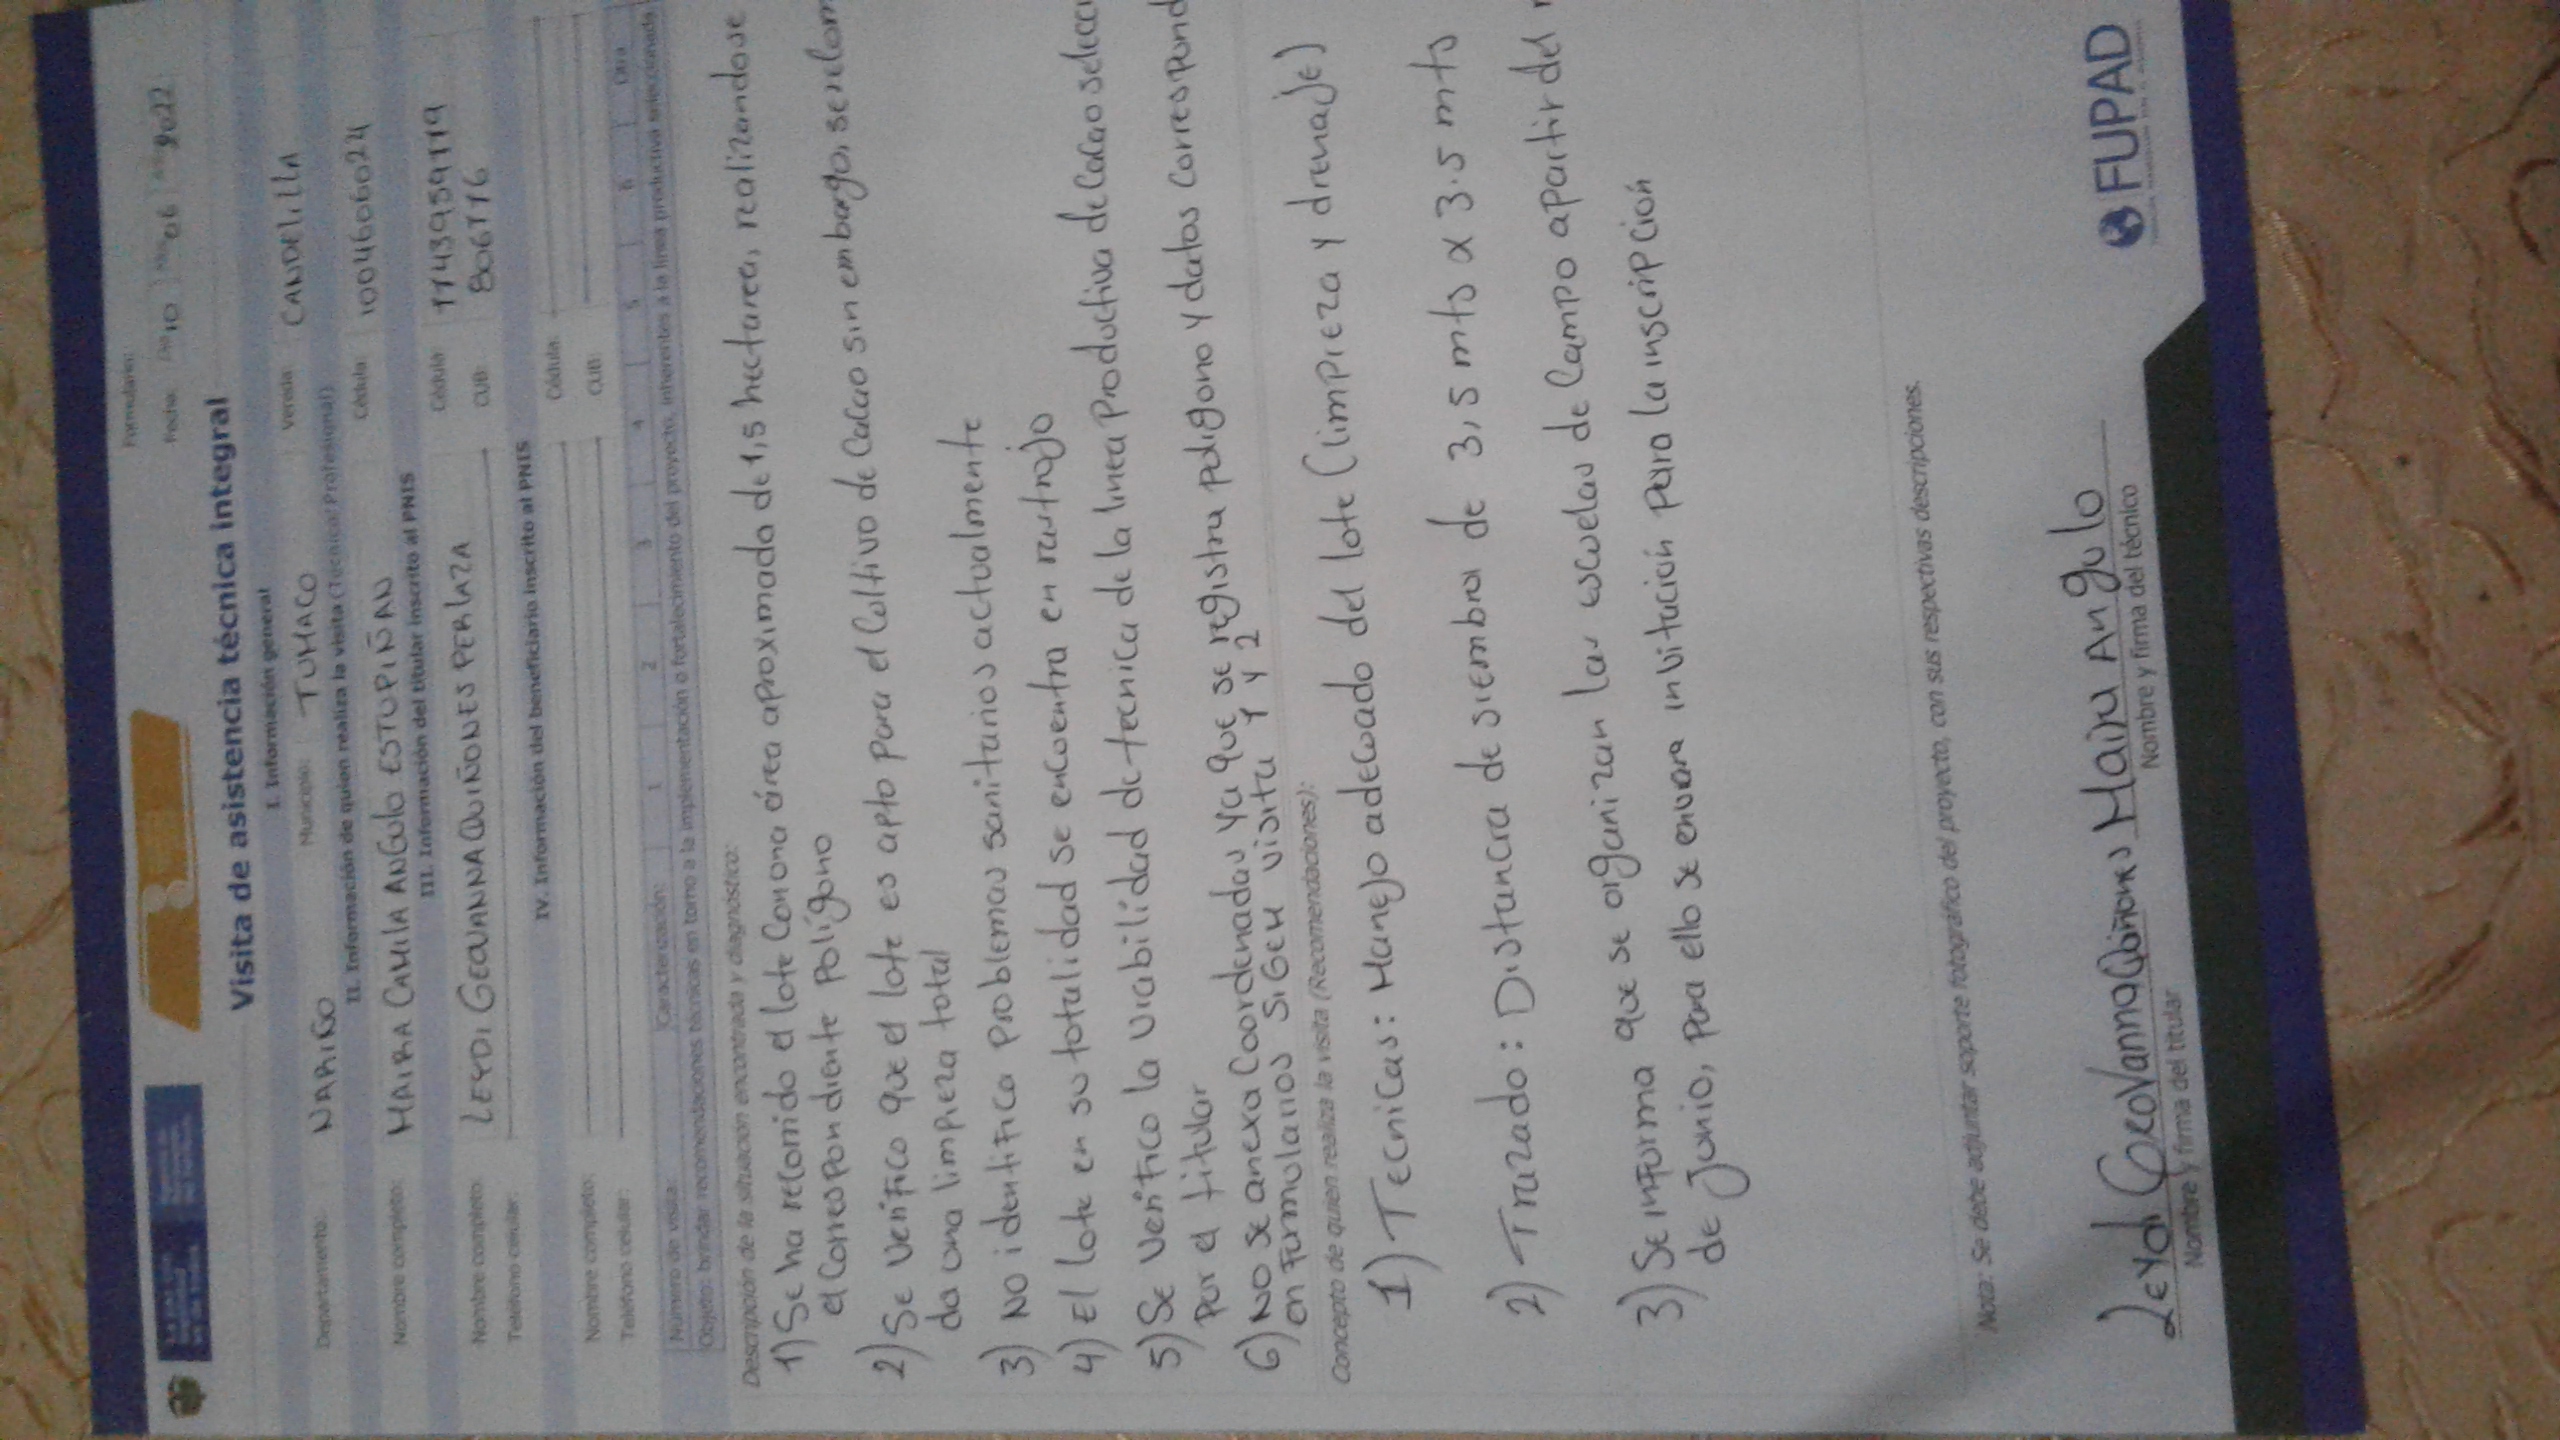 Formulario:
Fecha: Día 10 Mes 06 Año 2022
Visita de asistencia técnica integral
I. Información general
Departamento: NARIÑO Municipio: TUMACO Vereda: CANDELILLA
II. Información de quien realiza la visita (Técnico/ Profesional)
Nombre completo: MAIRA CAMILA ANGULO ESTUPIÑAN Cédula: 1004606024
III. Información del titular inscrito al PNIS
Nombre completo: LEYDI GEOVANNA QUIÑONES PERLAZA Cédula: 1143959119
Teléfono celular: CUB: 806116
IV. Información del beneficiario inscrito al PNIS
Nombre completo: Cédula:
Teléfono celular: CUB:
Número de visita: Caracterización: 1 2 3 4 5 6 Otra
Objeto: brindar recomendaciones técnicas en torno a la implementación o fortalecimiento del proyecto, inherentes a la línea productiva seleccionada
Descripción de la situación encontrada y diagnóstico:
1) Se ha recorrido el lote con una área aproximado de 1,5 hectarea, realizandose
el correspondiente Polígono
2) Se verifico que el lote es apto para el cultivo de cacao sin embargo,
da una limpieza total
3) No identifica problemas sanitarios actualmente
4) El lote en su totalidad se encuentra en rastrojo
5) Se verifico la viabilidad de tecnica de la linea Productiva de cacao
por el titular
6) No se anexa coordenadas ya que se registra poligono y datos
en formularios SIGEH visita 1 y 2
Concepto de quien realiza la visita (Recomendaciones):
1) Tecnicas: Manejo adecuado del lote (limpieza y drenaje)
2) Trazado: Distancia de siembra de 3,5 mts x 3.5 mts
3) Se informa que se organizan las escuelas de campo apartir del
de Junio, para ello se envara invitación para la inscripción
Nota: Se debe adjuntar soporte fotográfico del proyecto, con sus respectivas descripciones.
Leydi Geovanna Quiñones Maira Angulo
Nombre y firma del titular Nombre y firma del técnico
FUPAD